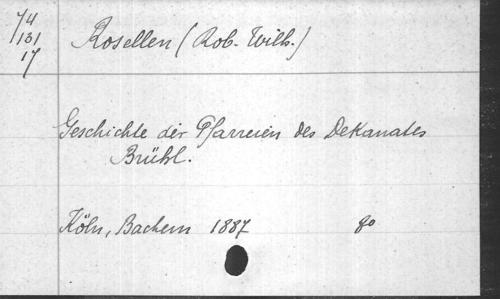 74
131
17
Rosellen (Rob. Wilh.)
Geschichte der Pfarreien des Dekanates
Brühl.
Köln, Bachem 1887 8o